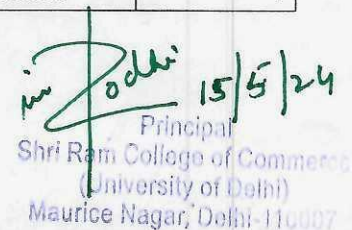 15/5/24
Principal
Shri Ram College of Commerce
(University of Delhi)
Maurice Nagar, Delhi-110007